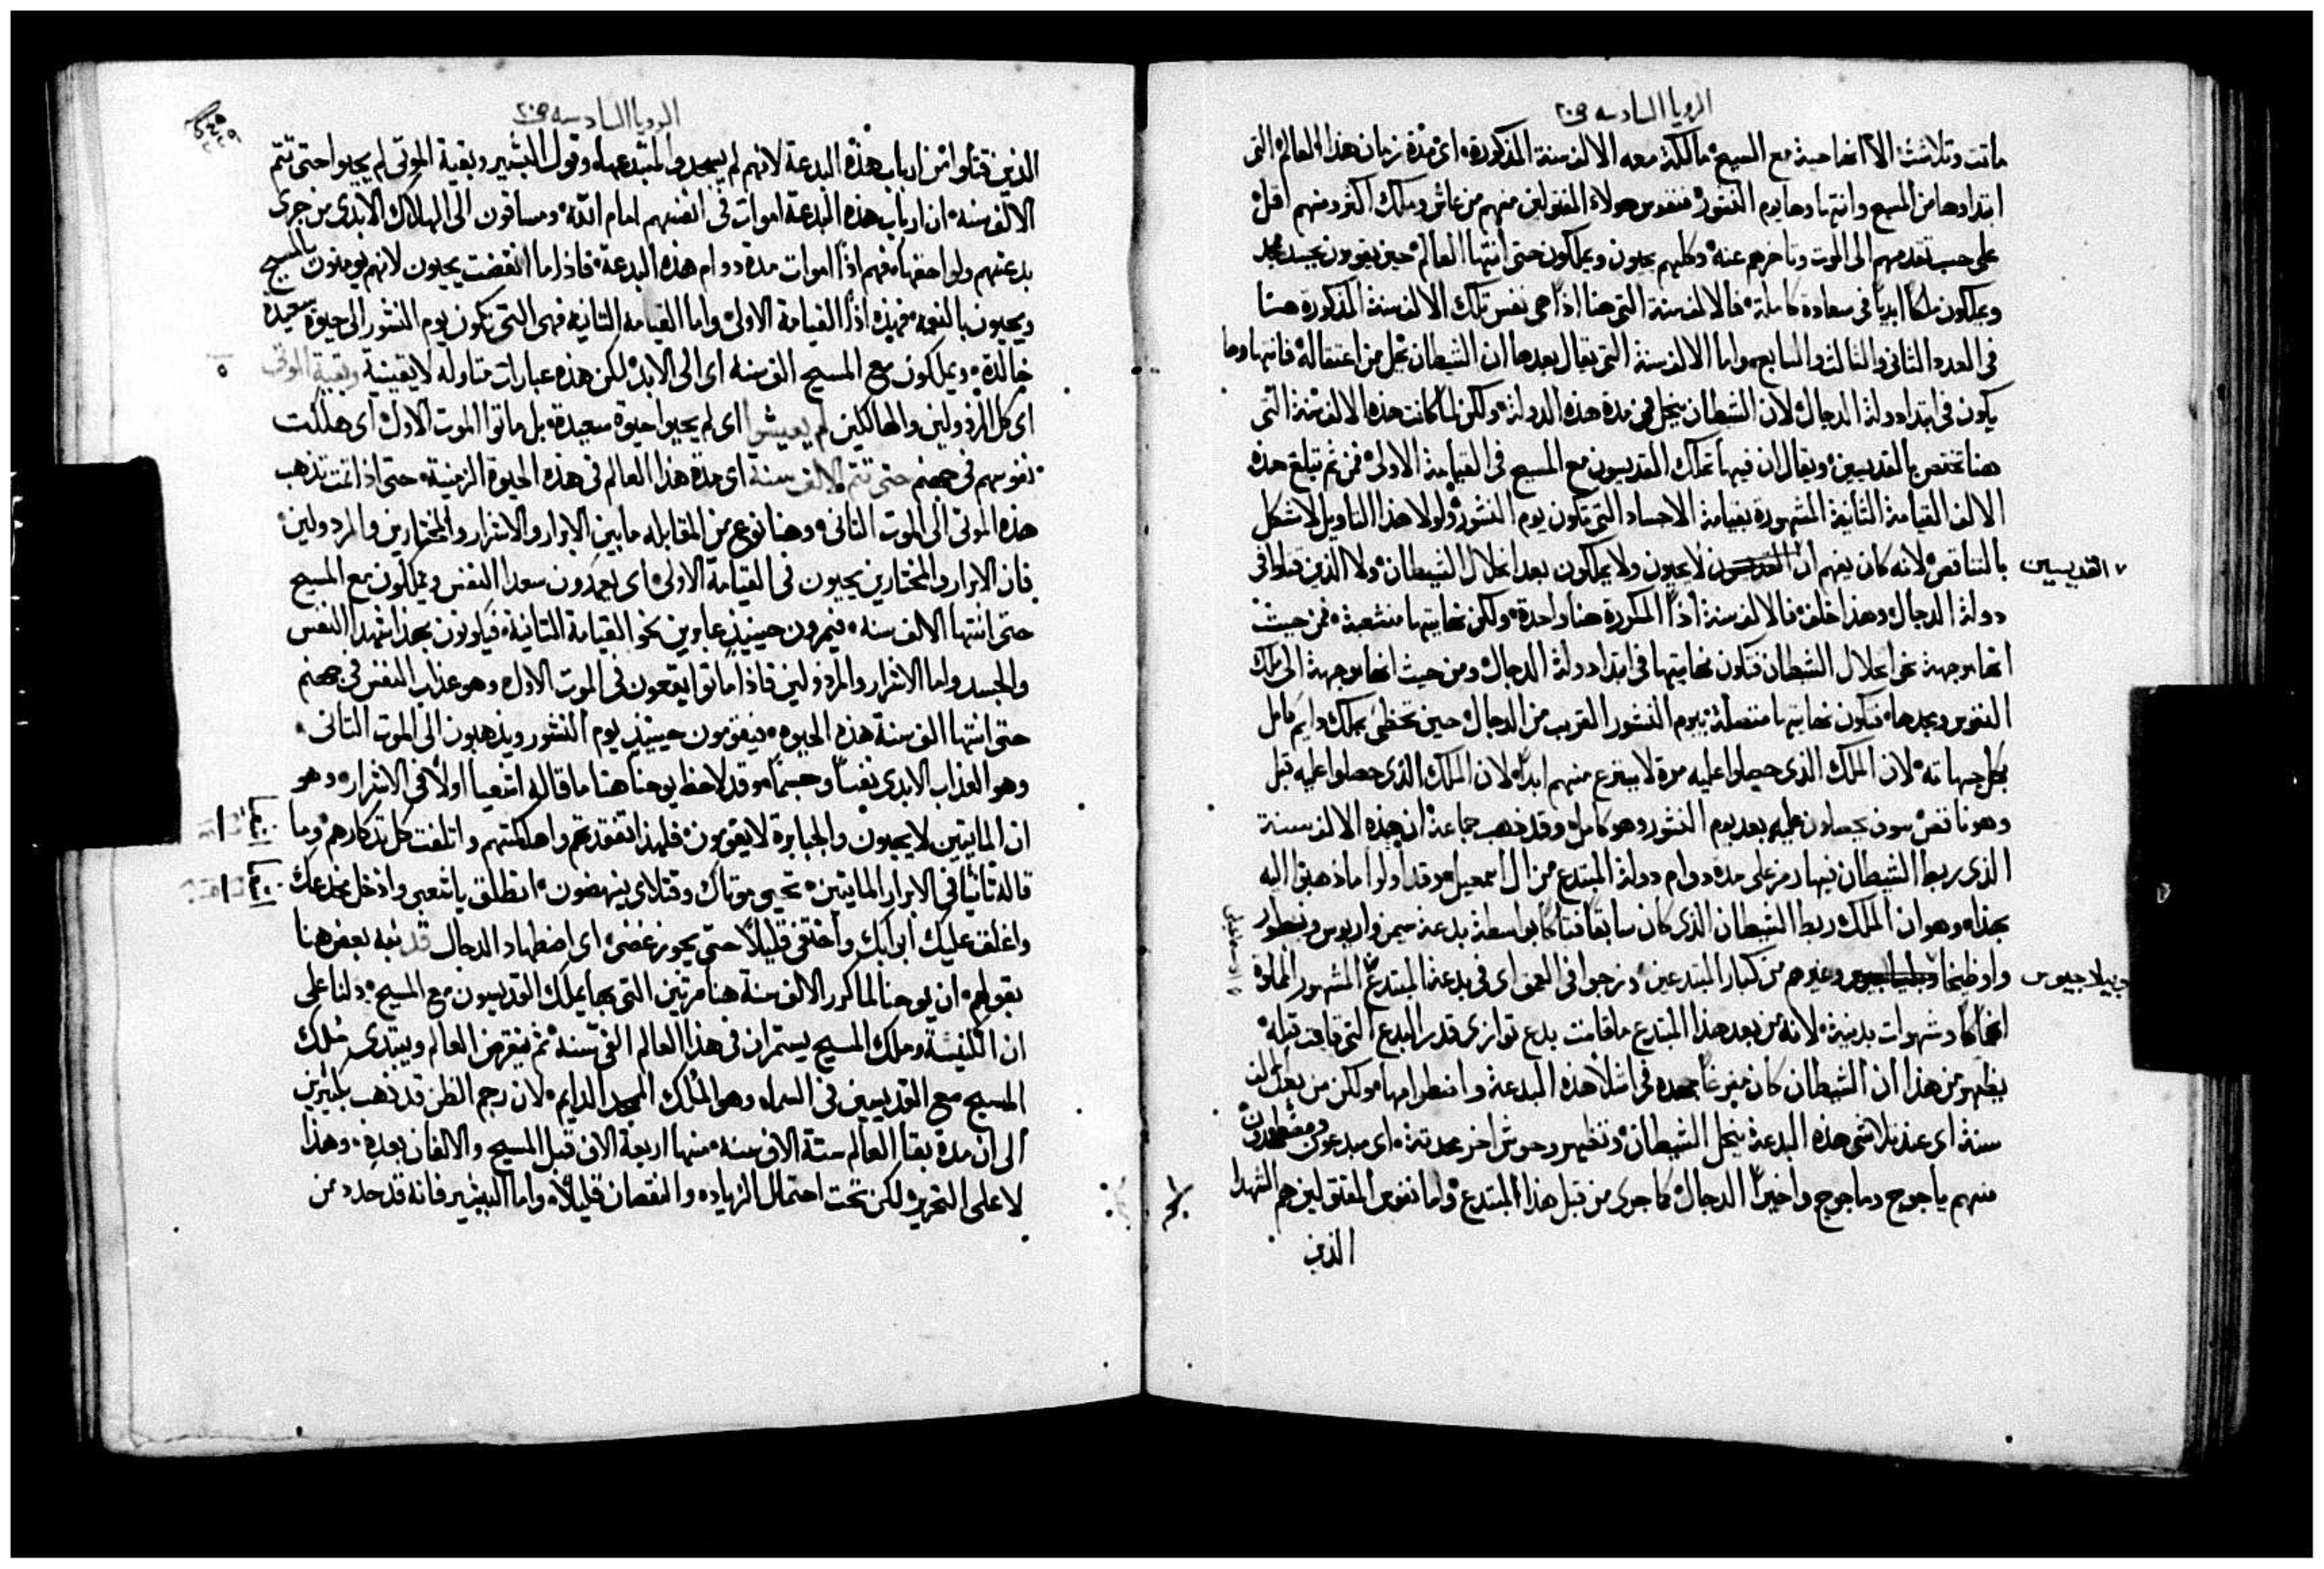 الرويا السادسه ف٢٠
ماتت وتلاشت الا انها حية مع المسيح مالكة معه الالف سنة المذكورة اى مدة زمان هذا العالم التى
ابتداوها من المسيح وانتهاوها يوم النشور فنفوس هولاء المقتولين منهم من عاش وملك اكثر ومنهم اقل
على حسب تقدمهم الى الموت وتاخرهم عنه وكلهم يحيون ويملكون حتى انتها العالم حين يقومون بجسد ممجد
ويملكون ملكا ابديا فى سعادة كاملة فالالف سنة التى هنا اذا هى نفس تلك الالف سنة المذكورة هنا
فى العدد الثانى والثالث والسابع واما الالف سنة التى يقال بعدها ان الشيطان يحل من اعتقاله فانتهاوها
يكون فى ابتدا دولة الدجال لان الشيطان ينحل فى مدة هذه الدولة ولكن لما كانت هذه الالف سنة التى
هنا تختص بالقديسين ويقال ان فيها تملك القديسون مع المسيح فى القيامة الاولى فمن ثم تبلغ هذه
الالف القيامة الثانية المشهورة بقيامة الاجساد التى تكون يوم النشور ولولا هذا التاويل لاشكل
بالتناقض لانه كان يفهم ان لا يحيون ولا يملكون بعد انحلال الشيطان ولا الذين قتلوا فى
القديسين
دولة الدجال وهذا خلف فالالف سنة اذا المكررة هنا واحدة ولكن نهايتها منشعبة فمن حيث
انها موجهة نحو انحلال الشيطان فتكون نهايتها فى ابتدا دولة الدجال ومن حيث انها موجهة الى ملك
النفوس ومجدها فتكون نهايتها متصلة بيوم النشور القريب من الدجال حين تحظى بملك دايم كامل
بكل جهاته لان الملك الذى حصلوا عليه مرة لا ينتزع منهم ابدا لان الملك الذى حصلوا عليه قبل
وهو ناقص سوف يحصلون عليه بعد يوم النشور وهو كامل وقد ذهب جماعة ان هذه الالف سنة
الذى ربط الشيطان فيها رمز على مدة دوام دولة المبتدع من ال اسمعيل وقد اولوا ما ذهبوا اليه
بهذا وهو ان الملك ربط الشيطان الذى كان سابقا فتاكا بواسطة بدعة سيمن واريوس ونسطور
واوطيخا وغيرهم من كبار المبتدعين وزجوا فى العمق اى فى بدعة المبتدع المشهور المملوة
وبيلاجيوس
انهماكا وشهوات بدنية لانه من بعد هذا المبتدع ما قامت بدع توازى قدر البدع التى قامت قبله
يظهر من هذا ان الشيطان كان مفرغا جهده فى انشا هذه البدعة واضطرامها ولكن من بعد الف
سنة اى عند تلاشى هذه البدعة ينحل الشيطان وتظهر وحوش اخر محدثة اى مبدعون ومضطهدون
منهم ياجوج وماجوج واخيرا الدجال كما جرى من قبل هذا المبتدع واما نفوس المقتولين هم الشهدا
الذين
الرويا السادسه ف٢٠
الذين قتلوا من ارباب هذه البدعة لانهم لم يسجدوا لمبتدعها وقول البشير وبقية الموتى لم يحيوا حتى تتم
الالف سنه ان ارباب هذه البدعة اموات فى انفسهم امام الله ومساقون الى الهلاك الابدى من جرى
بدعتهم ولواحقها فهم اذا اموات مدة دوام هذه البدعة فاذا ما انقضت يحيون لانهم يومنون بالمسيح
ويحيون بالنعمه فهذه اذا القيامة الاولى واما القيامه الثانيه فهى التى تكون يوم النشور الى حيوة سعيدة
خالدة ويملكون مع المسيح الف سنه اى الى الابد لكن هذه عبارات متاوله لا يقينية وبقية الموتى
٥
اى كل المرذولين والهالكين لم يعيشوا اى لم يحيوا حيوة سعيدة بل ماتوا الموت الاول اى هلكت
نفوسهم فى جهنم حتى تتم الالف سنة اى مدة هذا العالم فى هذه الحيوة الزمنية حتى اذا تمت تذهب
هذه الموتى الى الموت الثانى وهنا نوع من المقابله ما بين الابرار والاشرار والمختارين والمردولين
فان الابرار والمختارين يحيون فى القيامة الاولى اى يعمدون سعدا النفس ويملكون مع المسيح
حتى انتها الالف سنه فيمرون حينيذ عابرين نحو القيامة الثانية فيكونون بعد انتها سعدا النفس
والجسد واما الاشرار والمرذولين فاذا ماتوا يقعون فى الموت الاول وهو عذاب النفس فى جهنم
حتى انتها الف سنة هذه الحيوه فيقومون حينيذ يوم النشور ويذهبون الى الموت الثانى
وهو العذاب الابدى نفسا وجسما وقد لاحظ يوحنا هنا ما قاله اشعيا اولا فى الاشرار وهو
ان المايتين لا يحيون والجبابرة لا يقومون فلهذا تفقدتهم واهلكتهم واتلفت كل تذكارهم وما
قاله ثانيا فى الابرار المايتين تحيى موتاك وقتلاى ينهضون انطلق يا شعبى وادخل مخدعك
واغلق عليك ابوابك واختفى قليلا حتى يجوز غضبى اى اضطهاد الدجال قد نبه بعض هنا
بقولهم ان يوحنا لما كرر الالف سنة هنا مرتين التى بها يملك القديسون مع المسيح دلنا على
ان الكنيسة وملك المسيح يستمران فى هذا العالم الفى سنة ثم ينقرض العالم ويبتدى ملك
المسيح مع القديسين فى السماء وهو الملك المجد الدايم لان رجم الظن قد ذهب بكثيرين
الى ان مدة بقا العالم ستة الاف سنه منها اربعة الاف قبل المسيح والالفان بعده وهذا
لا على التحرير لكن تحت احتمال الزياده والنقصان قليلا واما البشير فانه قد حدد من